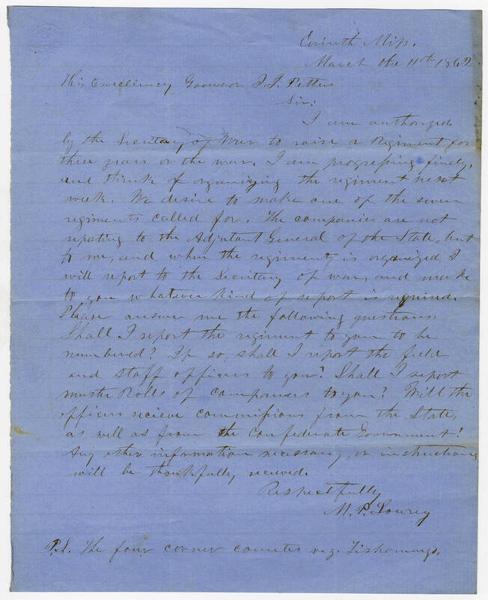 Corinth Miss.
March the 11th 1862
His Excellency Governor J. J. Pettus
Sir:
I am authorized
by the Secretary of War to raise a Regiment for
three years or the war. I am progressing finely,
and think of organizing the regiment next
week. We desire to make one of the seven
regiments called for. The companies are not
reporting to the Adjutant General of the State, but
to me, and when the regiment is organized I
will report to the Secretary of war, and make
to you whatever kind of report is required.
Please answer me the following questions:
Shall I report the regiment to you to be
numbered? If so, shall I report the field
and staff officers to you? Shall I report
muster Rolls of companies to you? Will the
officers recieve commissions from the State,
as well as from the Confederate Government?
Any other information necessary, or instructions
will be thankfully received.
Respectfully
M. P. Lowrey
P.S. The four corner counties viz. Tishomingo,